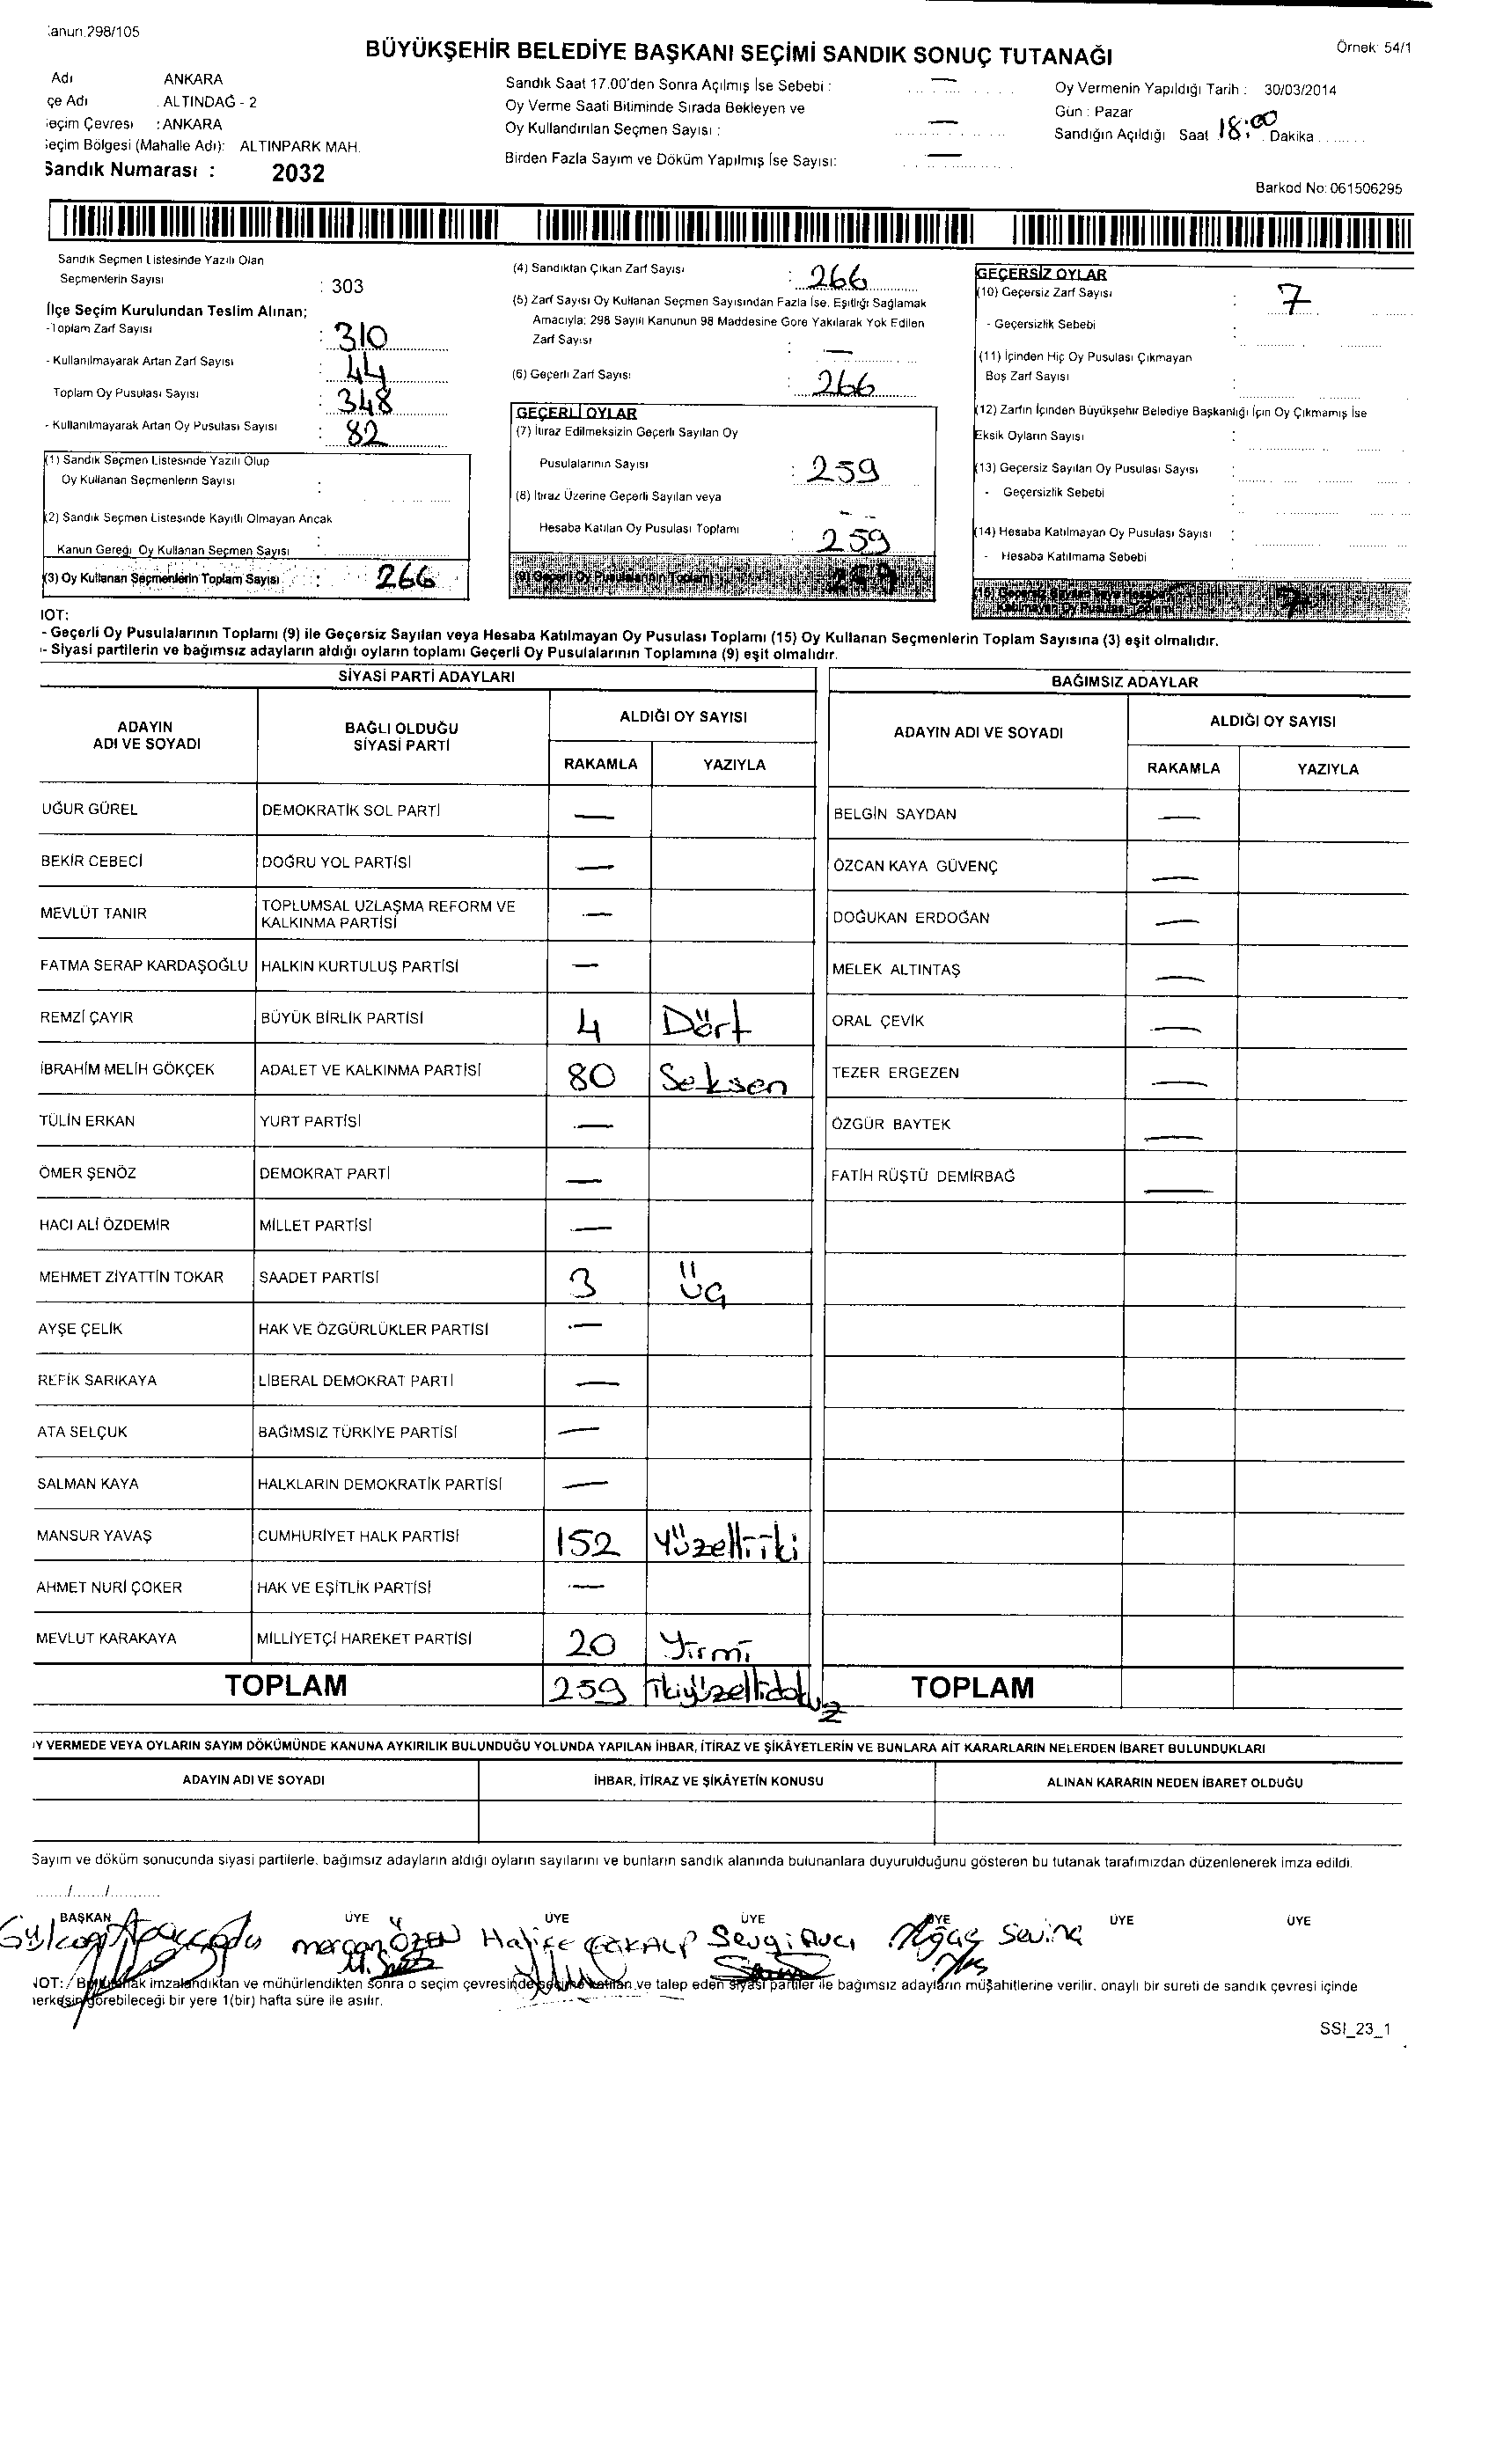 anun.298/105
Örnek: 54/1
BÜYÜKŞEHİR BELEDİYE BAŞKANI SEÇİMİ SANDIK SONUÇ TUTANAĞI
Adı ANKARA
çe Adı : ALTINDAĞ - 2
eçim Çevresi : ANKARA
eçim Bölgesi (Mahalle Adı): ALTINPARK MAH.
Sandık Numarası : 2032
Sandık Saat 17.00'den Sonra Açılmış İse Sebebi : —
Oy Verme Saati Bitiminde Sırada Bekleyen ve
Oy Kullandırılan Seçmen Sayısı : —
Birden Fazla Sayım ve Döküm Yapılmış İse Sayısı: —
Oy Vermenin Yapıldığı Tarih : 30/03/2014
Gün : Pazar
Sandığın Açıldığı Saat 18:00 Dakika
Barkod No: 061506295
Sandık Seçmen Listesinde Yazılı Olan
Seçmenlerin Sayısı : 303
İlçe Seçim Kurulundan Teslim Alınan;
-Toplam Zarf Sayısı : 310
- Kullanılmayarak Artan Zarf Sayısı : 44
Toplam Oy Pusulası Sayısı : 348
- Kullanılmayarak Artan Oy Pusulası Sayısı : 82
(1) Sandık Seçmen Listesinde Yazılı Olup
Oy Kullanan Seçmenlerin Sayısı :
(2) Sandık Seçmen Listesinde Kayıtlı Olmayan Ancak
Kanun Gereği Oy Kullanan Seçmen Sayısı :
(3) Oy Kullanan Seçmenlerin Toplam Sayısı : 266
(4) Sandıktan Çıkan Zarf Sayısı : 266
(5) Zarf Sayısı Oy Kullanan Seçmen Sayısından Fazla İse, Eşitliği Sağlamak
Amacıyla; 298 Sayılı Kanunun 98 Maddesine Göre Yakılarak Yok Edilen
Zarf Sayısı : —
(6) Geçerli Zarf Sayısı : 266
GEÇERLİ OYLAR
(7) İtiraz Edilmeksizin Geçerli Sayılan Oy
Pusulalarının Sayısı : 259
(8) İtiraz Üzerine Geçerli Sayılan veya
Hesaba Katılan Oy Pusulası Toplamı : 259
(9) Geçerli Oy Pusulalarının Toplamı : 259
GEÇERSİZ OYLAR
(10) Geçersiz Zarf Sayısı : 7
- Geçersizlik Sebebi :
(11) İçinden Hiç Oy Pusulası Çıkmayan
Boş Zarf Sayısı :
(12) Zarfın İçinden Büyükşehir Belediye Başkanlığı İçin Oy Çıkmamış İse
Eksik Oyların Sayısı :
(13) Geçersiz Sayılan Oy Pusulası Sayısı :
- Geçersizlik Sebebi :
(14) Hesaba Katılmayan Oy Pusulası Sayısı :
- Hesaba Katılmama Sebebi :
(15) Geçersiz Sayılan veya Hesaba
Katılmayan Oy Pusulası Toplamı 7
IOT:
- Geçerli Oy Pusulalarının Toplamı (9) ile Geçersiz Sayılan veya Hesaba Katılmayan Oy Pusulası Toplamı (15) Oy Kullanan Seçmenlerin Toplam Sayısına (3) eşit olmalıdır.
- Siyasi partilerin ve bağımsız adayların aldığı oyların toplamı Geçerli Oy Pusulalarının Toplamına (9) eşit olmalıdır.
SİYASİ PARTİ ADAYLARI
ADAYIN ADI VE SOYADI BAĞLI OLDUĞU SİYASİ PARTİ ALDIĞI OY SAYISI
RAKAMLA YAZIYLA
UĞUR GÜREL DEMOKRATİK SOL PARTİ —
BEKİR CEBECİ DOĞRU YOL PARTİSİ —
MEVLÜT TANIR TOPLUMSAL UZLAŞMA REFORM VE KALKINMA PARTİSİ —
FATMA SERAP KARDAŞOĞLU HALKIN KURTULUŞ PARTİSİ —
REMZİ ÇAYIR BÜYÜK BİRLİK PARTİSİ 4 Dört
İBRAHİM MELİH GÖKÇEK ADALET VE KALKINMA PARTİSİ 80 Seksen
TÜLİN ERKAN YURT PARTİSİ —
ÖMER ŞENÖZ DEMOKRAT PARTİ —
HACI ALİ ÖZDEMİR MİLLET PARTİSİ —
MEHMET ZİYATTİN TOKAR SAADET PARTİSİ 3 Üç
AYŞE ÇELİK HAK VE ÖZGÜRLÜKLER PARTİSİ —
REFİK SARIKAYA LİBERAL DEMOKRAT PARTİ —
ATA SELÇUK BAĞIMSIZ TÜRKİYE PARTİSİ —
SALMAN KAYA HALKLARIN DEMOKRATİK PARTİSİ —
MANSUR YAVAŞ CUMHURİYET HALK PARTİSİ 152 Yüzelliiki
AHMET NURİ ÇOKER HAK VE EŞİTLİK PARTİSİ —
MEVLUT KARAKAYA MİLLİYETÇİ HAREKET PARTİSİ 20 Yirmi
TOPLAM 259 ikiyüzellidokuz
BAĞIMSIZ ADAYLAR
ADAYIN ADI VE SOYADI ALDIĞI OY SAYISI
RAKAMLA YAZIYLA
BELGİN SAYDAN —
ÖZCAN KAYA GÜVENÇ —
DOĞUKAN ERDOĞAN —
MELEK ALTINTAŞ —
ORAL ÇEVİK —
TEZER ERGEZEN —
ÖZGÜR BAYTEK —
FATİH RÜŞTÜ DEMİRBAĞ —
TOPLAM
Y VERMEDE VEYA OYLARIN SAYIM DÖKÜMÜNDE KANUNA AYKIRILIK BULUNDUĞU YOLUNDA YAPILAN İHBAR, İTİRAZ VE ŞİKÂYETLERİN VE BUNLARA AİT KARARLARIN NELERDEN İBARET BULUNDUKLARI
ADAYIN ADI VE SOYADI İHBAR, İTİRAZ VE ŞİKÂYETİN KONUSU ALINAN KARARIN NEDEN İBARET OLDUĞU
Sayım ve döküm sonucunda siyasi partilerle, bağımsız adayların aldığı oyların sayılarını ve bunların sandık alanında bulunanlara duyurulduğunu gösteren bu tutanak tarafımızdan düzenlenerek imza edildi.
....../......./...........
BAŞKAN ÜYE ÜYE ÜYE ÜYE ÜYE ÜYE
mercan ÖZEN Halife Sevgi Avcı Sevinç
NOT: Bu tutanak imzalandıktan ve mühürlendikten sonra o seçim çevresinde seçime katılan ve talep eden siyasi partiler ile bağımsız adayların müşahitlerine verilir, onaylı bir sureti de sandık çevresi içinde
herkesin görebileceği bir yere 1(bir) hafta süre ile asılır.
SSI_23_1